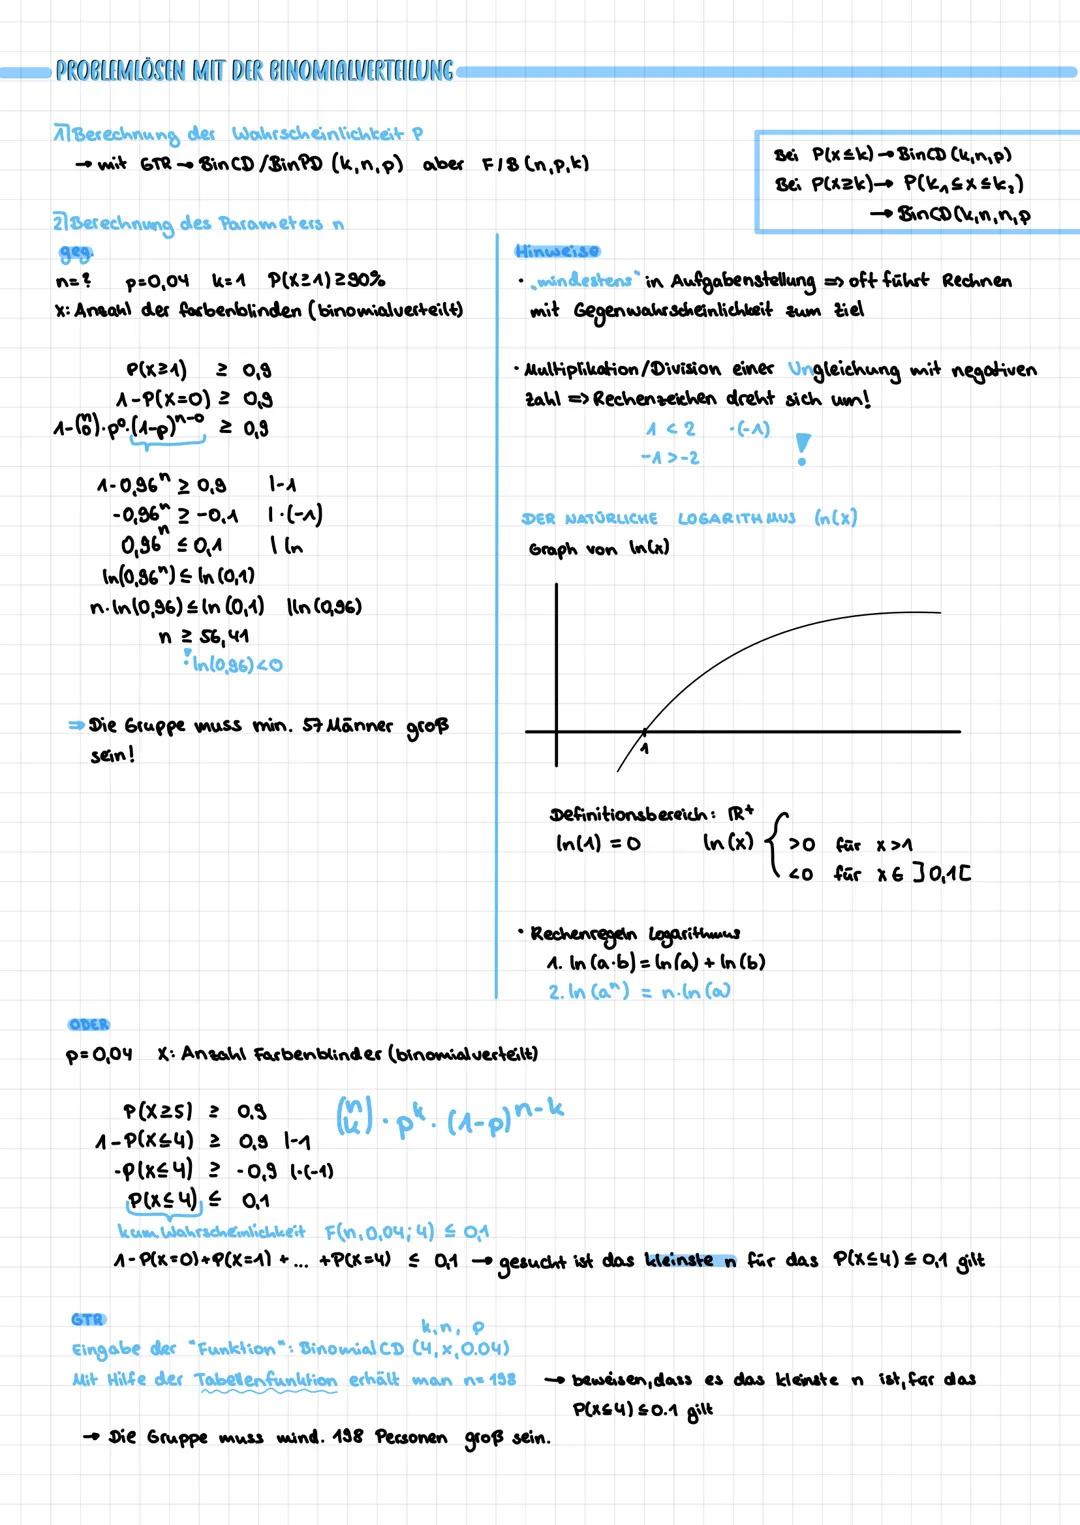 PROBLEMLÖSEN MIT DER BINOMIALVERTEILUNG
1) Berechnung der Wahrscheinlichkeit P
→ mit GTR → BinCD/BinPD (k,n,p) aber F/B (n,p,k)
Bei P(x≤k) → BinCD (k,n,p)
Bei P(x≥k) → P(k₁≤x≤k₂)
→ BinCD (k,n,n,p
2) Berechnung des Parameters n
geg.
n=? p=0,04 k=1 P(X≥1)≥90%
X: Anzahl der farbenblinden (binomialverteilt)
P(X≥1) ≥ 0,9
1-P(X=0) ≥ 0,9
1-(n 0)·p⁰·(1-p)ⁿ⁻⁰ ≥ 0,9
1-0,96ⁿ ≥ 0,9 |-1
-0,96ⁿ ≥ -0,1 |·(-1)
0,96ⁿ ≤ 0,1 | ln
ln(0,96ⁿ) ≤ ln(0,1)
n·ln(0,96) ≤ ln(0,1) |ln(0,96)
n ≥ 56,41
! ln(0,96)<0
⇒ Die Gruppe muss min. 57 Männer groß
sein!
Hinweise
• „mindestens“ in Aufgabenstellung ⇒ oft führt Rechnen
mit Gegenwahrscheinlichkeit zum Ziel
• Multiplikation/Division einer Ungleichung mit negativen
Zahl ⇒ Rechenzeichen dreht sich um!
1 < 2 ·(-1)
-1 > -2 !
DER NATÜRLICHE LOGARITHMUS ln(x)
Graph von ln(x)
1
Definitionsbereich: ℝ+
ln(1) = 0 ln(x) { >0 für x>1
<0 für x∈ ]0,1[
• Rechenregeln Logarithmus
1. ln(a·b) = ln(a) + ln(b)
2. ln(aⁿ) = n·ln(a)
ODER
p=0,04 X: Anzahl Farbenblinder (binomialverteilt)
P(X≥5) ≥ 0,9 (n k) · pᵏ · (1-p)ⁿ⁻ᵏ
1-P(X≤4) ≥ 0,9 |-1
-P(X≤4) ≥ -0,9 |·(-1)
P(X≤4) ≤ 0,1
kum. Wahrscheinlichkeit F(n,0,04;4) ≤ 0,1
1-P(X=0)+P(X=1)+...+P(X=4) ≤ 0,1 → gesucht ist das kleinste n für das P(X≤4) ≤ 0,1 gilt
GTR
k, n, p
Eingabe der "Funktion": BinomialCD (4,x,0.04)
Mit Hilfe der Tabellenfunktion erhält man n=198 → beweisen, dass es das kleinste n ist, für das
P(X≤4) ≤ 0.1 gilt
→ Die Gruppe muss mind. 198 Personen groß sein.